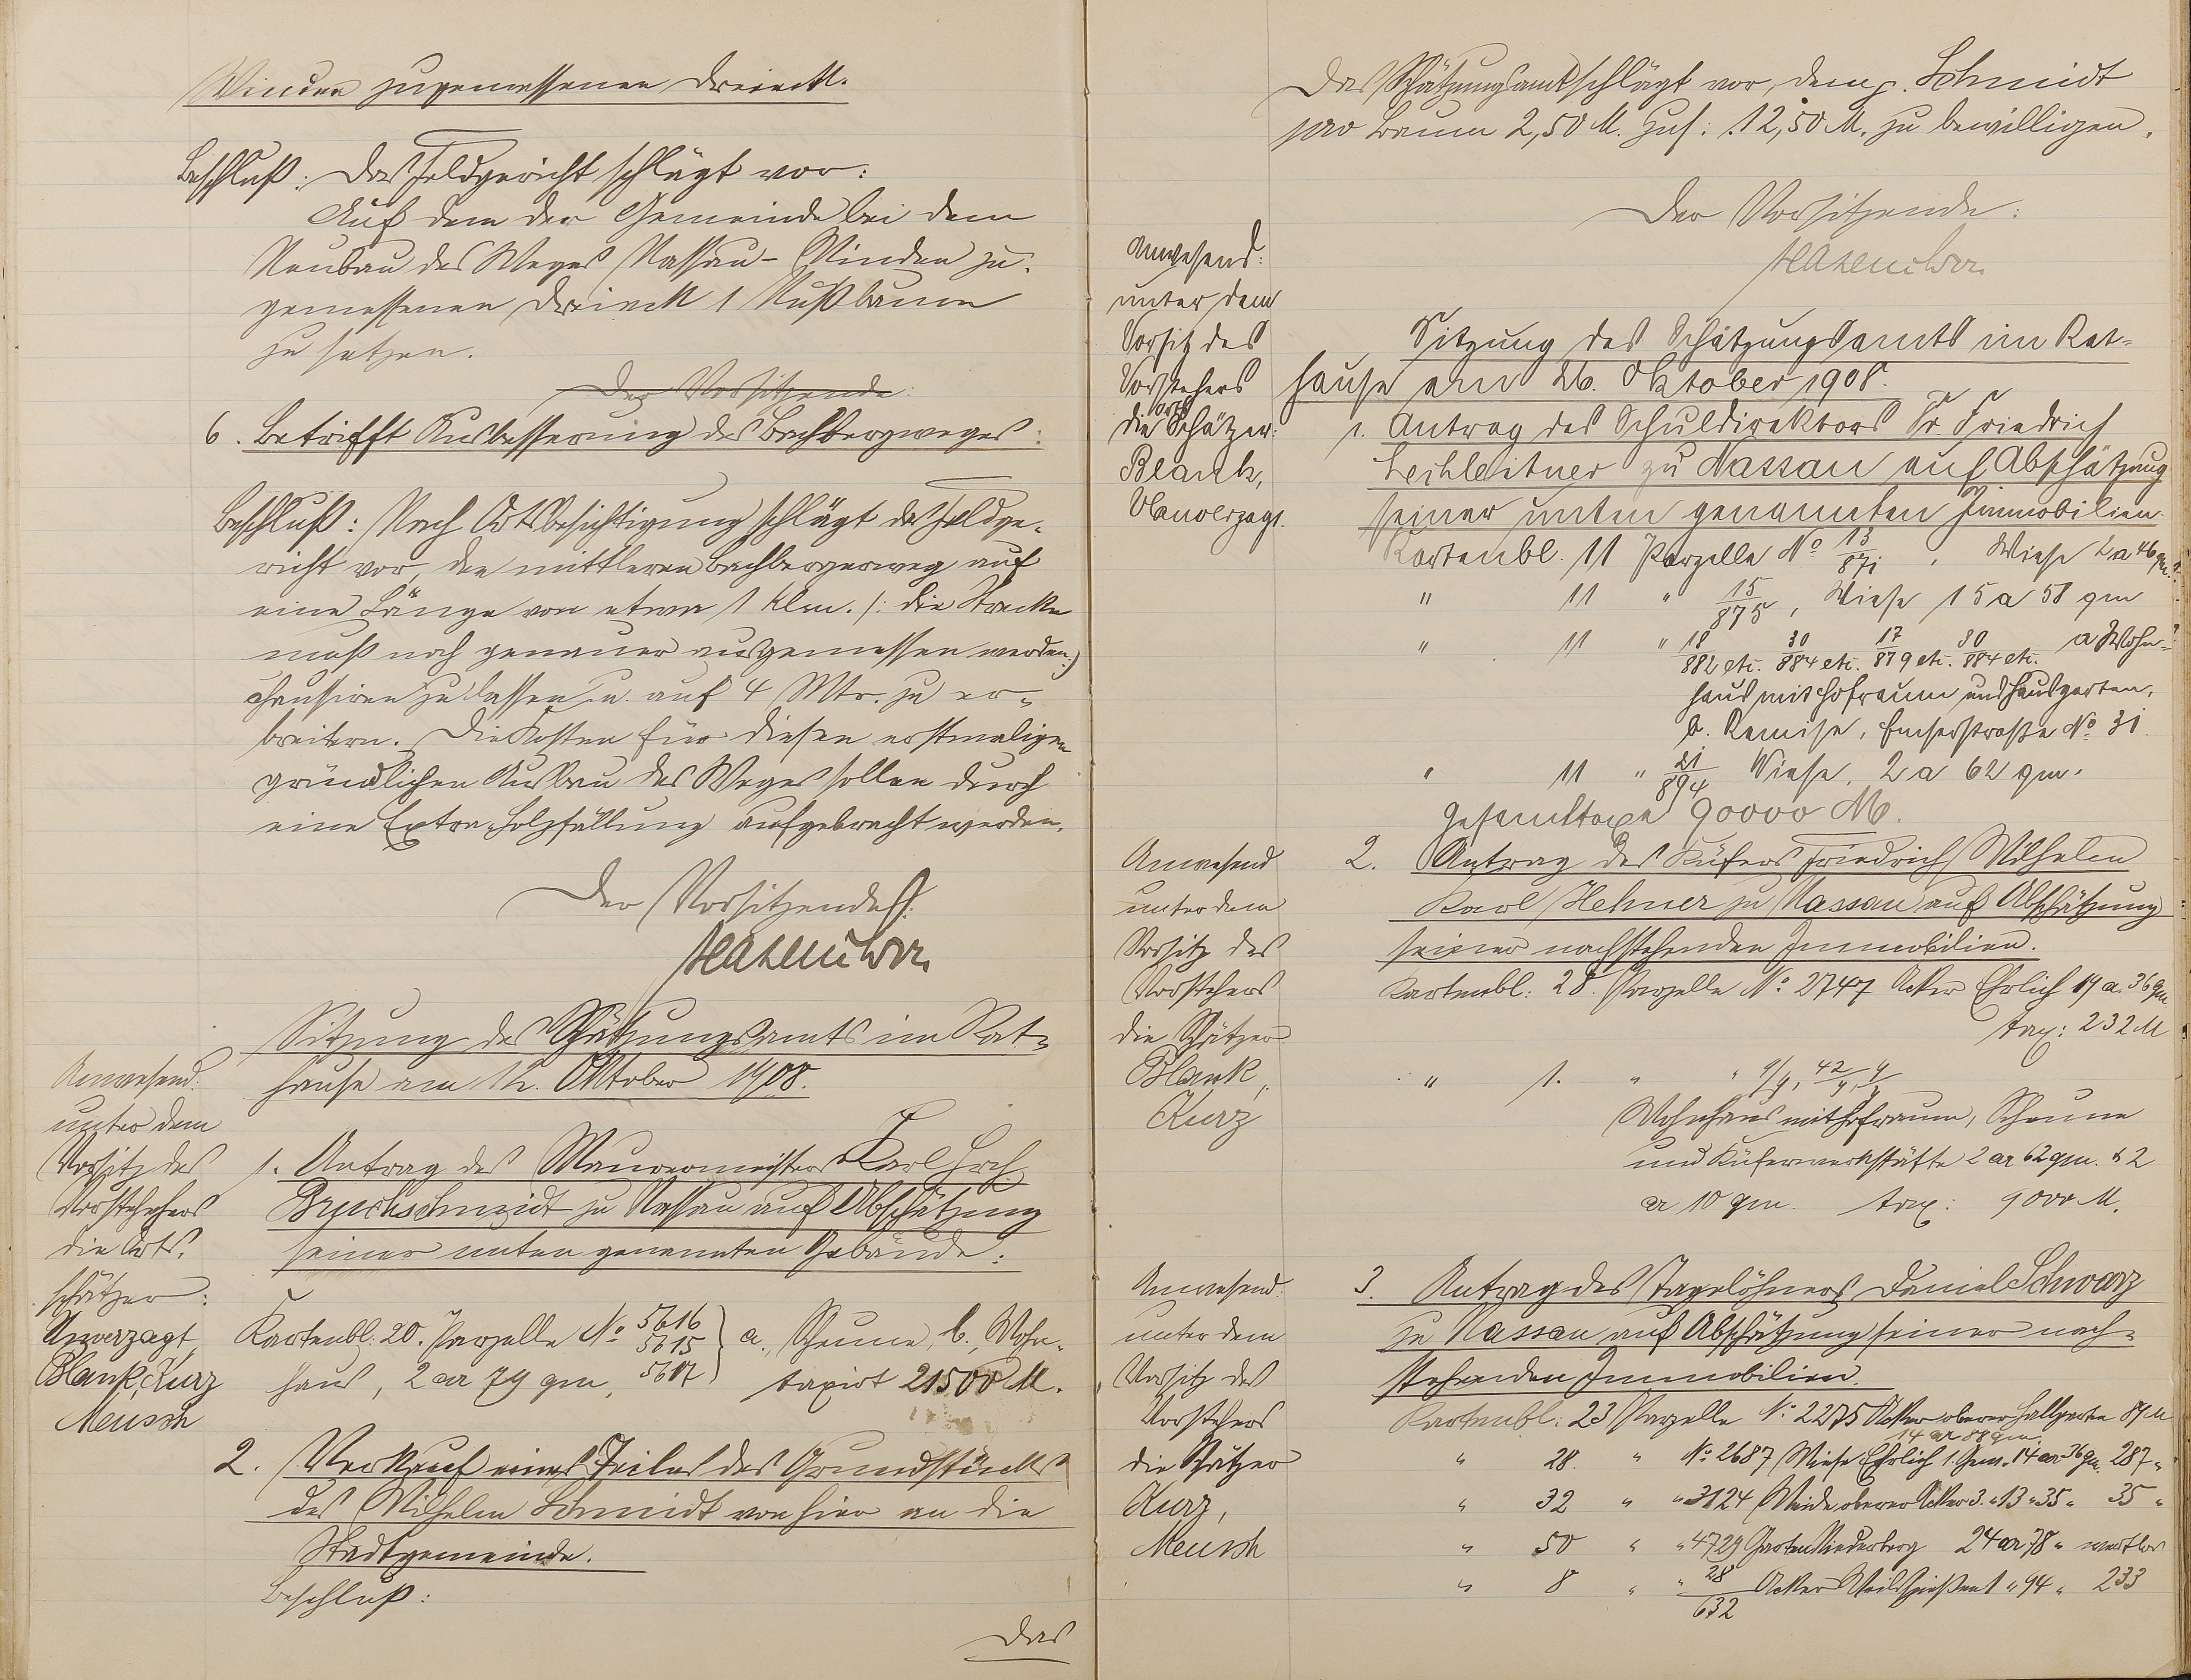 Winden zugemessenen Dreieck.
Beschluß: Das Feldgericht schlägt vor:
Auf dem der Gemeinde bei dem
Neubau des Weges Nassau-Winden zu-
gemessenen Dreieck 1 Nußbaum
zu setzen.
Der Vorsitzende:
6. Betrifft Ausbesserung des Bachbergweges:
Beschluß: Nach Ortsbesichtigung schlägt das Feldge-
richt vor, den mittleren Bachbergerweg auf
eine Länge von etwa 1 Klm. /: die Strecke
muß noch genauer ausgemessen werden :)
chausiren zu lassen u. auf 4 Mtr. zu er-
breitern. Die Kosten für diesen erstmaligen
gründlichen Ausbau des Weges sollen durch
eine Extra-Holzfällung aufgebracht werden.
Der Vorsitzende:
Hasenclever
Sitzung des Schätzungsamts im Rat-
hause am 12. Oktober 1908.
Anwesend:
unter dem
Vorsitz des
Vorstehers
die Orts-
schätzer:
Unverzagt
Blank, Kurz
Meusch
1. Antrag des Maurermeisters Karl Hrch.
Bruchschmidt zu Nassau auf Abschätzung
seiner unten genannten Gebäude:
Kartenbl: 20. Parzelle No 5616 5615 5617 a., Scheune, b., Wohn-
haus, 2 ar 79 qm, taxirt 21500 M.
2. Verkauf eines Teiles des Grundstücks
des Wilhelm Schmidt von hier an die
Stadtgemeinde.
Beschluß:
Das
Das Schätzungsamt schlägt vor, dem p. Schmidt
pro Baum 2,50 M. Zus: 12,50 M. zu bewilligen.
Der Vorsitzende:
Hasenclever
Anwesend:
unter dem
Vorsitz des
Vorstehers
die Ortsschätzer:
Blank,
Unverzagt.
Sitzung des Schätzungsamts im Rat-
hause am 26. Oktober 1908.
1. Antrag des Schuldirektors Dr. Friedrich
Lechleitner zu Nassau auf Abschätzung
seiner unten genannten Immobilien.
Kartenbl. 11 Parzelle No 13/871, Wiese 2 a 46 qm.
" 11 " 15/875, Wiese 15 a 58 qm
" 11 " 18/882 etc. 30/884 etc. 17/879 etc. 80/884 etc. a Wohn-
haus mit Hofraum und Hausgarten,
b. Remise, Emserstraße No 31.
" 11 " 21/894 Wiese, 2 a 62 qm.
Gesamttaxe 90000 M.
Anwesend
unter dem
Vorsitz des
Vorstehers
die Schätzer
Blank,
Kurz
2. Antrag des Küfers Friedrich Wilhelm
Karl Hehner zu Nassau auf Abschätzung
seiner nachstehenden Immobilien.
Kartenbl: 28. Parzelle No 2747 Acker Ehrlich 19 a. 36 qm
tax: 232 M
" 1. " "
Wohnhaus mit Hofraum, Scheune
und Küferwerkstätte 2 ar 62 qm. & 2
ar 10 qm. tax: 9000 M.
Anwesend:
unter dem
Vorsitz des
Vorstehers
die Schätzer
Kurz,
Meusch
3. Antrag des Tagelöhners Daniel Schwarz
zu Nassau auf Abschätzung seiner nach-
stehenden Immobilien.
Kartenbl: 23 Parzelle No 2275 Acker oberer Hallgarten 89 M
14 ar 88 qm.
" 28. " No 2687 Wiese Ehrlich 1. Gew. 14 ar 36 qm. 287 "
" 32 " " 3124 Weide oberer Acker 3. " 13 " 35 " 35 "
" 50 " " 4729 Garten Niederberg 24 ar 78 " wertlos
" 8 " " 28/632 Acker 1 " 94 " 233